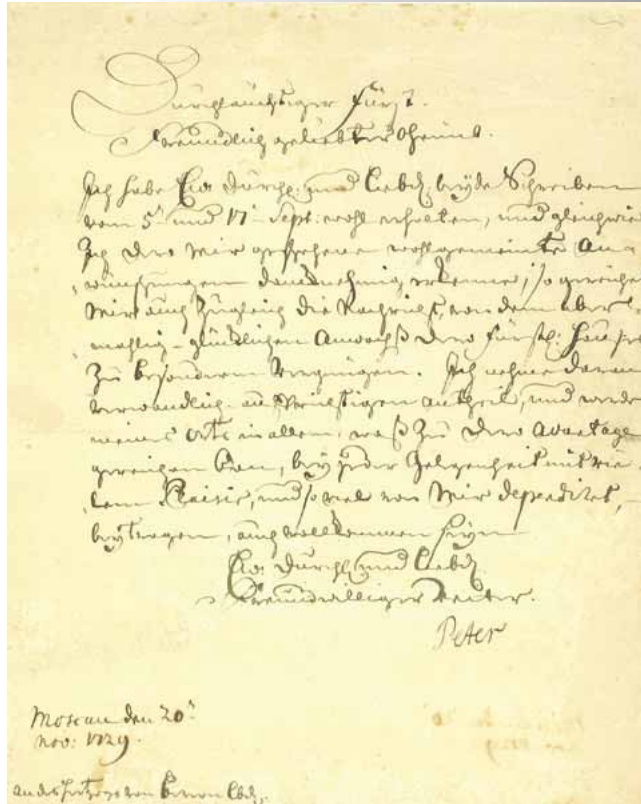 Durchläuchtiger Fürst.
Freundlich geliebter Oheimb.
Ich habe Ew. Durchl: und Liebd: beyde Schreiben
vom 5t und 17t Sept: wohl erhalten, und gleichwie
Ich dero mir geschehene wohlgemeinte An-
wünschungen danknehmig erkenne; so gereichet
Mir auch zugleich die Nachricht, von dem aber-
mahlig-glücklichen Anwachß dero Fürstl: Hauses
zu besonderm Vergnügen. Ich nehme daran
verwandlich aufrichtigen antheil, und werde
meines Orts in allem, waß zu dero Avantage
gereichen kan, bey jeder Gelegenheit mit vie-
lem Plaisir, und so viel von Mir dependiret,
beytragen, auch vollkommen seyn
Ew. Durchl. und Liebd.
Freundwilliger Vetter.
Peter
Moscau den 20t
Nov: 1729.
an des Hertzogs von Bevern Lbd.